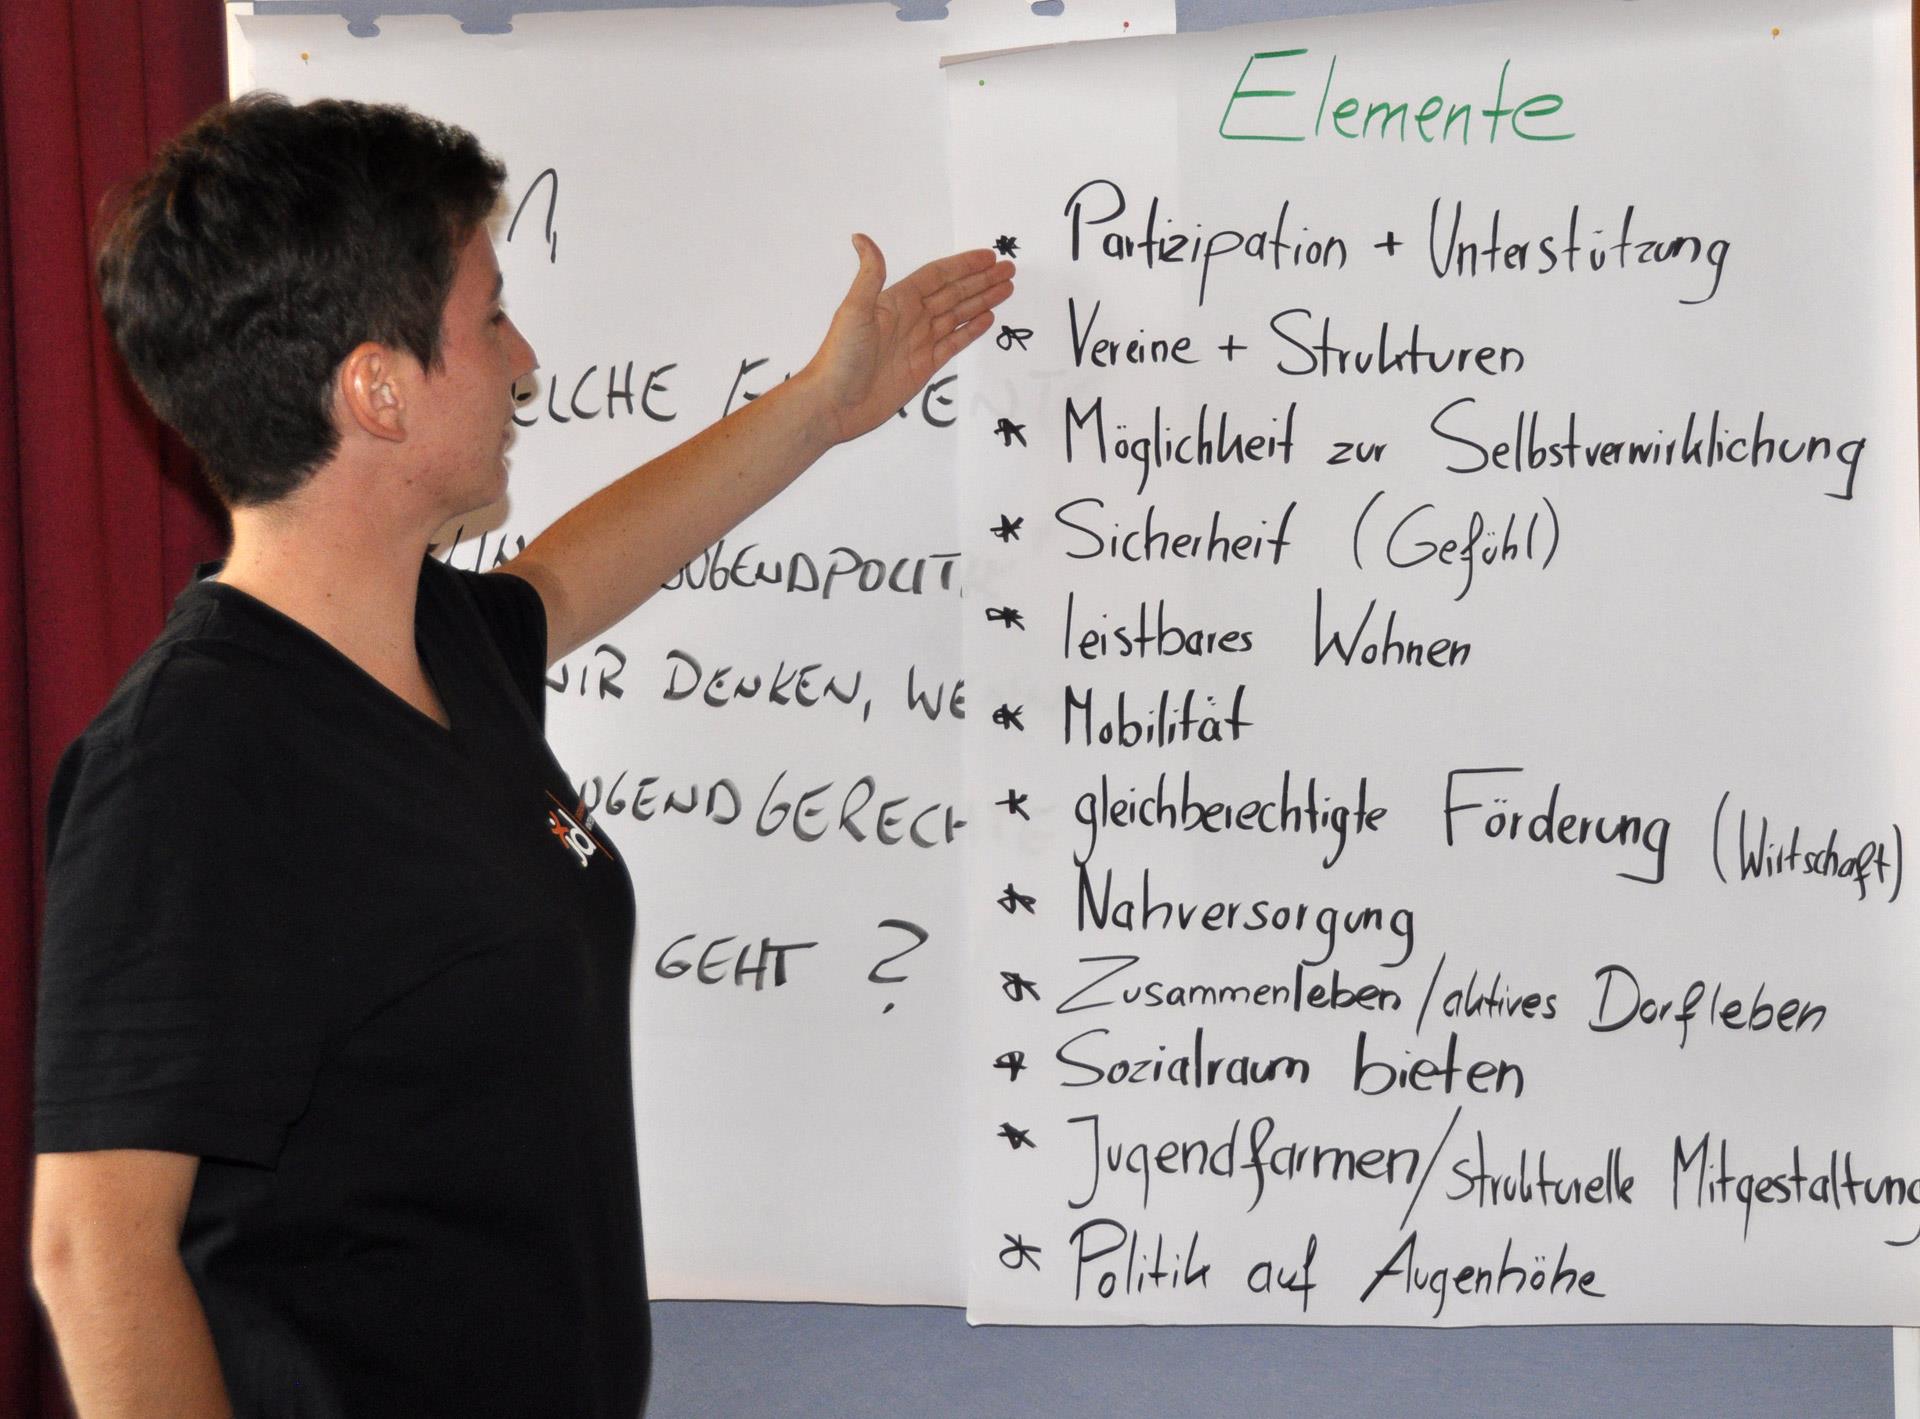 1,
ELCHE
JUGENDPOLIT
WIR DENKEN, WE
UGENDGERECH
GEHT ?
Elemente
* Partizipation + Unterstützung
* Vereine + Strukturen
* Möglichkeit zur Selbstverwirklichung
* Sicherheit (Gefühl)
* leistbares Wohnen
* Mobilität
* gleichberechtigte Förderung (Wirtschaft)
* Nahversorgung
* Zusammenleben/aktives Dorfleben
* Sozialraum bieten
* Jugendfarmen/strukturelle Mitgestaltung
* Politik auf Augenhöhe